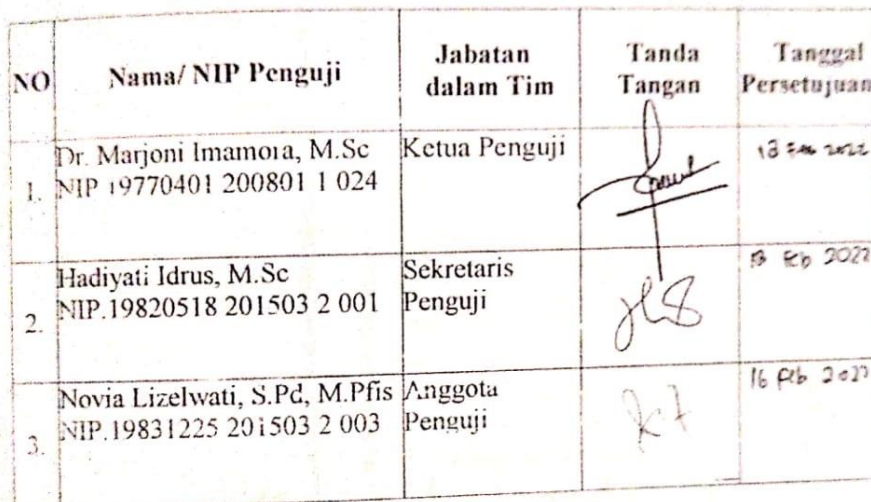 NO
Nama/ NIP Penguji
Jabatan
dalam Tim
Tanda
Tangan
Tanggal
Persetujuan
1.
Dr. Marjoni Imamora, M.Sc
NIP 19770401 200801 1 024
Ketua Penguji
2022
2.
Hadiyati Idrus, M.Sc
NIP.19820518 201503 2 001
Sekretaris
Penguji
Feb 2022
3.
Novia Lizelwati, S.Pd, M.Pfis
NIP.19831225 201503 2 003
Anggota
Penguji
16 Feb 2022